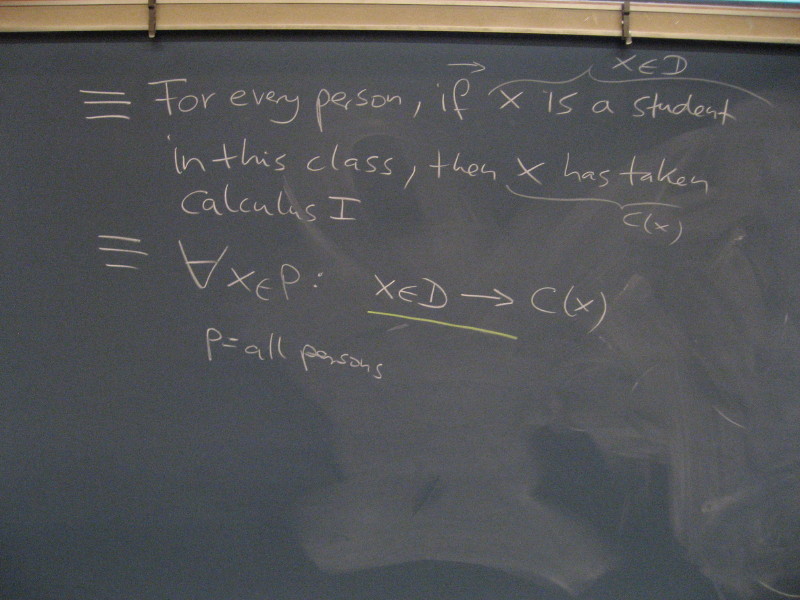 x∈D
≡ For every person, if x is a student
in this class, then x has taken
Calculus I
C(x)
≡ ∀x∈P: x∈D → C(x)
P=all persons